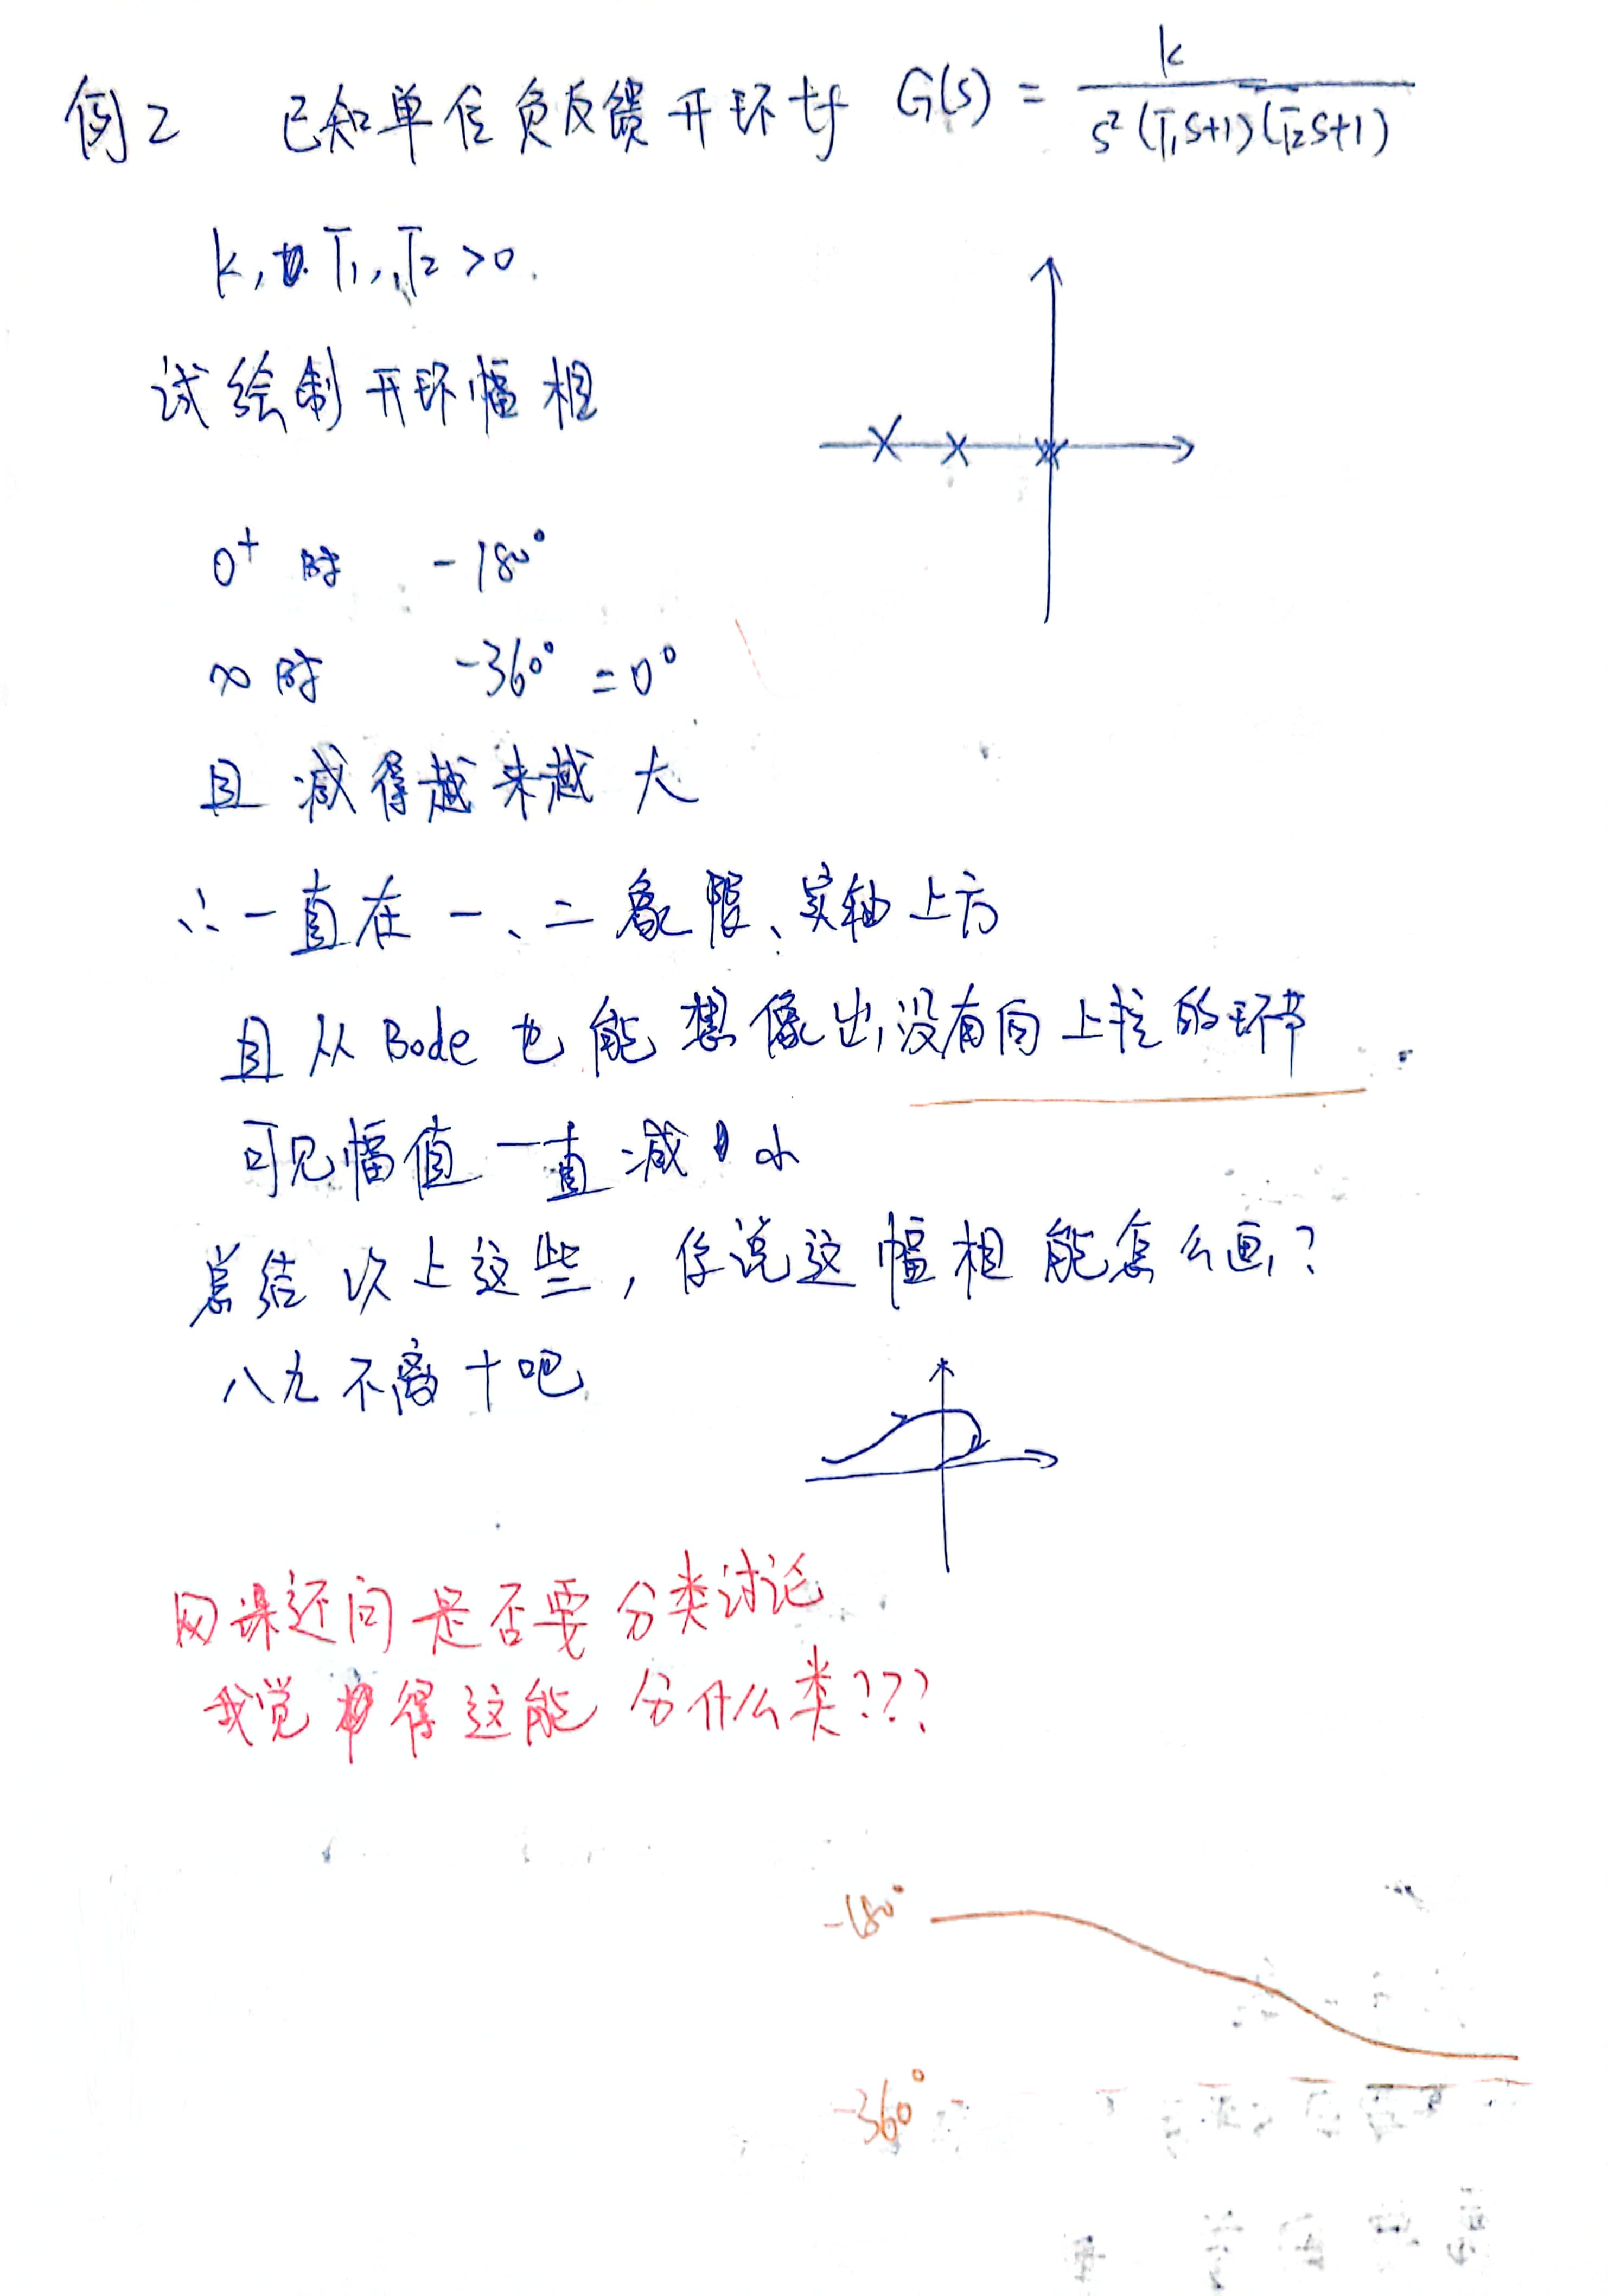 例2 已知单位负反馈开环tf G(s) = k / s²(T₁s+1)(T₂s+1)
k, T₁, T₂ >0.
试绘制开环幅相
0⁺ 时 -180°
∞ 时 -360° = 0°
且减得越来越大
∴一直在一、二象限、实轴上方
且从Bode也能想像出,没有向上拉的环节
可见幅值一直减小
总结以上这些,你说这幅相能怎么画?
八九不离十吧
网课还问是否要分类讨论
我觉得这能分什么类???
-180°
-360°